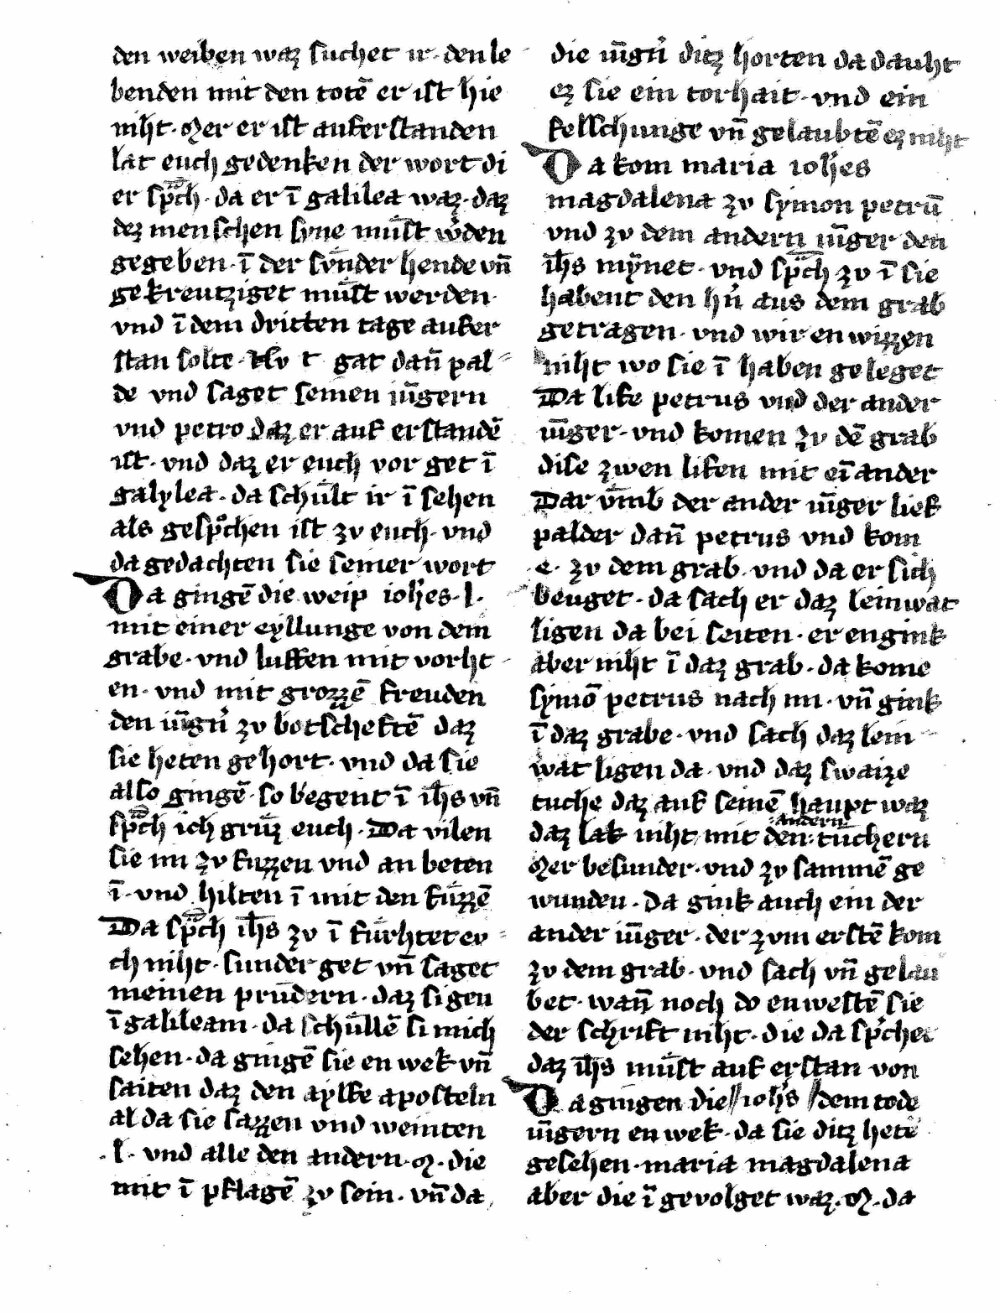 den weiben waz suchet ir · den le
benden mit den totē er ist hie
niht · Mer er ist aufer standen
lat euch gedenken der wort di
er sp̄ch · da er ī galilea waz · daz
dez menschen syne mūst w̓den
gegeben · ī der sv̄nder hende vn̄
gekreutziget mūst werden ·
vnd ī dem dritten tage aufer
stan solte · Nv t gat dan̄ pal
de vnd saget seinen iūgern
vnd petro daz er auf erstandē
ist · vnd daz er euch vor get ī
galylea · da schūlt ir ī sehen
als gesp̄chen ist zv euch · vnd
da gedachten sie seiner wort
Da gingē die weip ioh̄es · l ·
mit einer eyllunge von dem
grabe · vnd luffen mit vorht
en · vnd mit grozzē freuden
den iūgn̓ zv botscheftē daz
sie heten gehort · vnd da sie
also gingē · so begent ī ih̄s vn̄
sp̄ch ich grūz euch · Da vilen
sie im zv fuzzen vnd an beten
ī · vnd hilten ī mit den fūzzē
Da sp̄ch ih̄s zv ī fūrhtet ev
ch niht · sunder get vn̄ saget
meinen prūdern · daz si gen
ī galileam · da schūllē si mich
sehen · da gingē sie en wek vn̄
saiten daz den aylfe aposteln
al da sie sazzen vnd weinten
· l · vnd alle den andern · M · die
mit ī pflagē zv sein · vn̄ da
die iūgn̓ ditz horten da dauht
ez sie ein torhait · vnd ein
felschunge vn̄ gelaubtē ez niht
Da kom maria ioh̄es
magdalena zv symon petrū
vnd zv dem andern iūger den
ih̄s mȳnet · vnd sp̄ch zv ī sie
habent den hn̓ aus dem grab
getragen · vnd wir en wizzen
niht wo sie ī haben geleget
Da life petrus vnd der ander
iūger · vnd komen zv dē grab
dise zwen lifen mit eī ander
Dar v̄mb der ander iūger lief
palder dan̄ petrus vnd kom
· e · zv dem grab · vnd da er sich
beuget · da sach er daz leinwat
ligen da bei seiten · er engink
aber niht ī daz grab · da kome
symō petrus nach im · vn̄ gink
ī daz grabe · vnd sach daz lein
wat ligen da · vnd daz swaize
tuche daz auf seinē haupt waz
andern
daz lak niht mit den : tūchern
Mer besunder · vnd zv sammē ge
wunden · da gink auch ein der
ander iūger · der zvm erstē kom
zv dem grab · vnd sach vn̄ gelau
bet · wan̄ noch do en westē sie
der schrift niht · die da sp̄chet
daz ih̄s mūst auf erstan von
Da gingen die ioh̄s dem tode
iūgern en wek · da sie ditz hetē
gesehen · maria magdalena
aber die ī gevolget waz · M · da